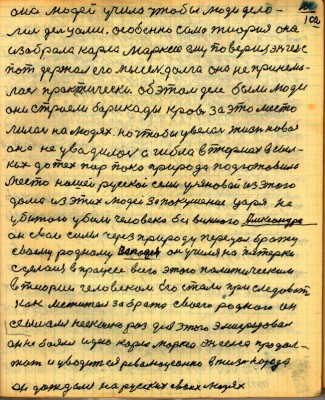 102
она людей учила чтобы люди дело-
лися делами. особенно само тиория она
изабрала карла Маркса ему поверил энгес
тот держал его мысел долга она не принема-
лася практически. об этом деле были люди
они строели барикады кровь за это место
лилася на людях. но чтобы увелась жизнь новая
она не увадилась а гибла в тюрмах
ках до тех пор пока природа подготовила
место нашей русской семи уляновай из этого
дома из этих людей за покушение царя не
убитого убили человека бы вшего Александра
он свои силы через природу передал братку
своему родному он учился на пятерки
сделался в працесе всего этого политическим
в тиории человеком его стали при следовать
как местител за брата своего родного он
ссылался несколько раз для этого эмигрировал
он не боялся идею карла маркса энгелса продол-
жать и уводится революцеонно в жизн
он дождался на русских своих людях